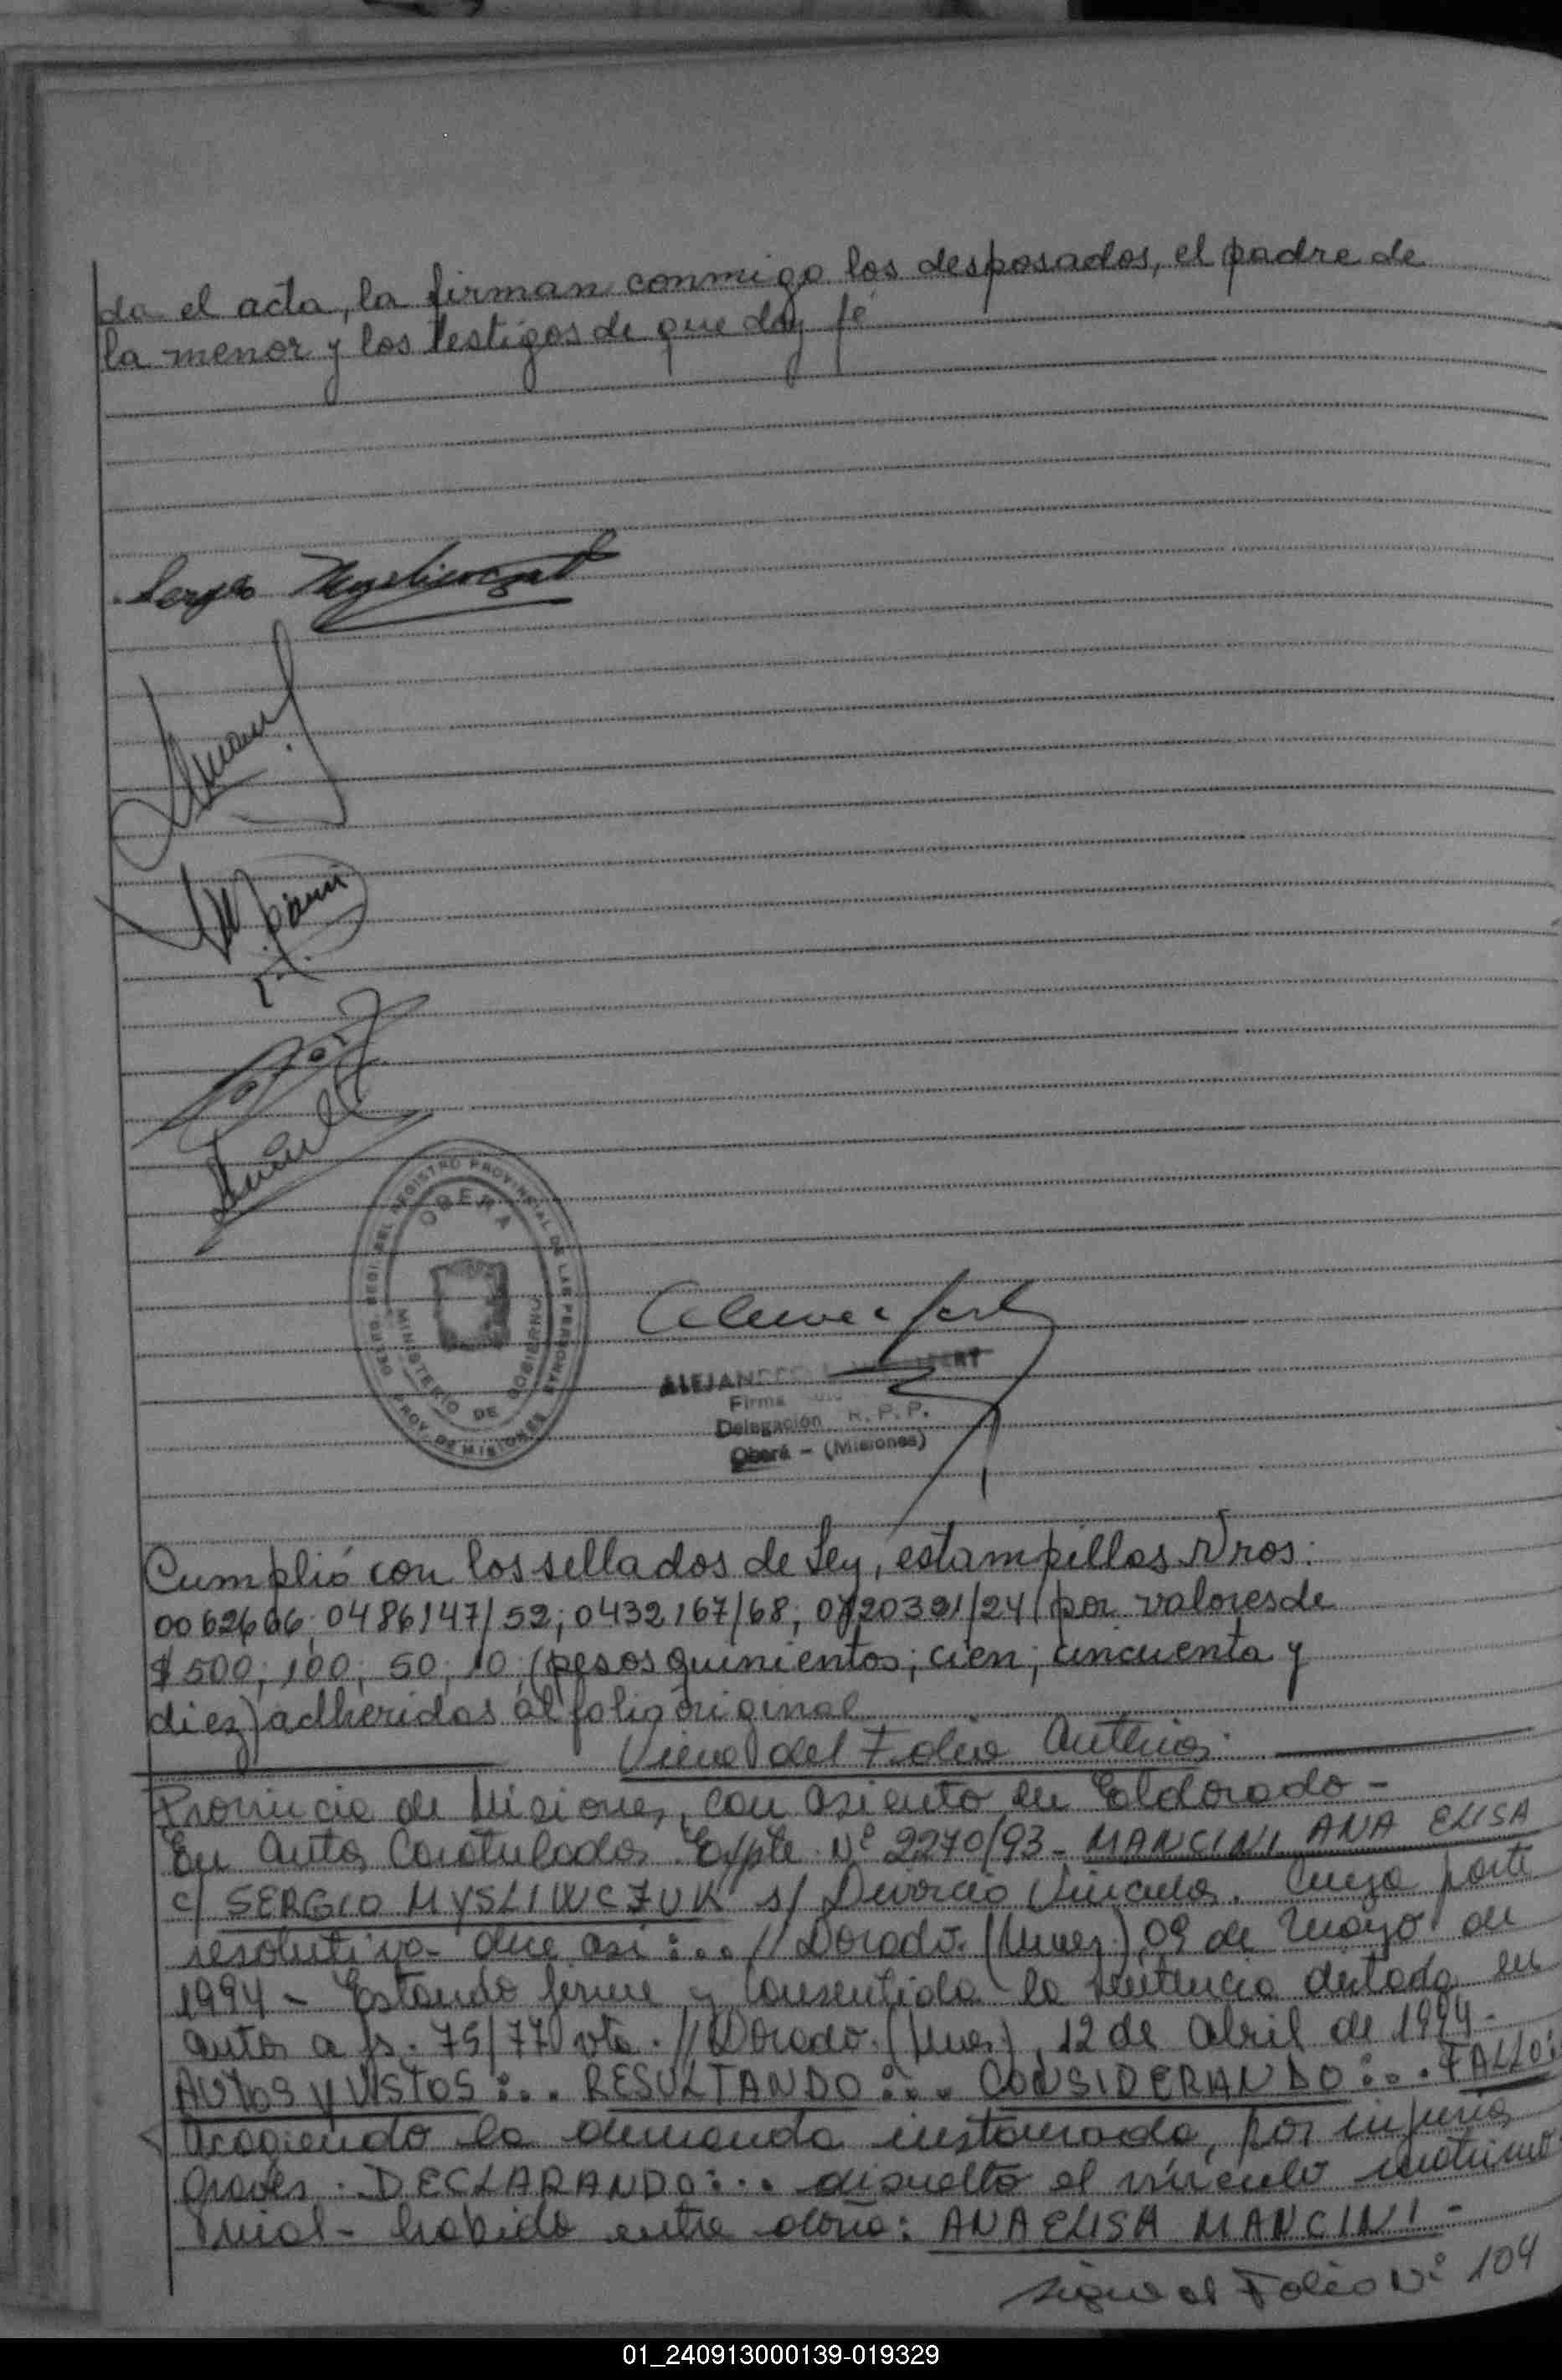 da el acta, la firman conmigo los desposados, el padre de
la menor y los testigos de que doy fé
Sergio
DELEG. REGI. DEL REGISTRO PROVINCIAL DE LAS PERSONAS
OBERA
MINISTERIO DE GOBIERNO
PROV. DE MISIONES
Firma
Delegación R. P. P.
Oberá - (Misiones)
Cumplió con los sellados de Ley, estampillas Nros:
0062666; 0486147/52; 0432167/68; 0720321/24 (por valores de
$ 500; 100; 50; 10; (pesos quinientos; cien; cincuenta y
diez) adheridos al folio original
Viene del Folio Anterior
Provincia de Misiones, con asiento en Eldorado -
En autos Caratulados Expte. Nº 2270/93 - MANCINI ANA ELISA
c/ SERGIO MYSLIWCZUK s/ Divorcio Vincular. Cuya parte
resolutiva dice asi :... // Dorado. (Mnes.) 09 de Mayo de
1994 - Estando firme y consentida la sentencia dictada en
autos a fs. 75/77 vta. // Dorado. (Mnes.), 12 de Abril de 1994 -
AUTOS Y VISTOS :... RESULTANDO :... CONSIDERANDO :... FALLO:
Acogiendo la demanda instaurada, por injurias
Graves. DECLARANDO :... disuelto el vínculo matrimo
nial - habido entre doña: ANA ELISA MANCINI -
sigue el Folio Nº 104
01_240913000139-019329